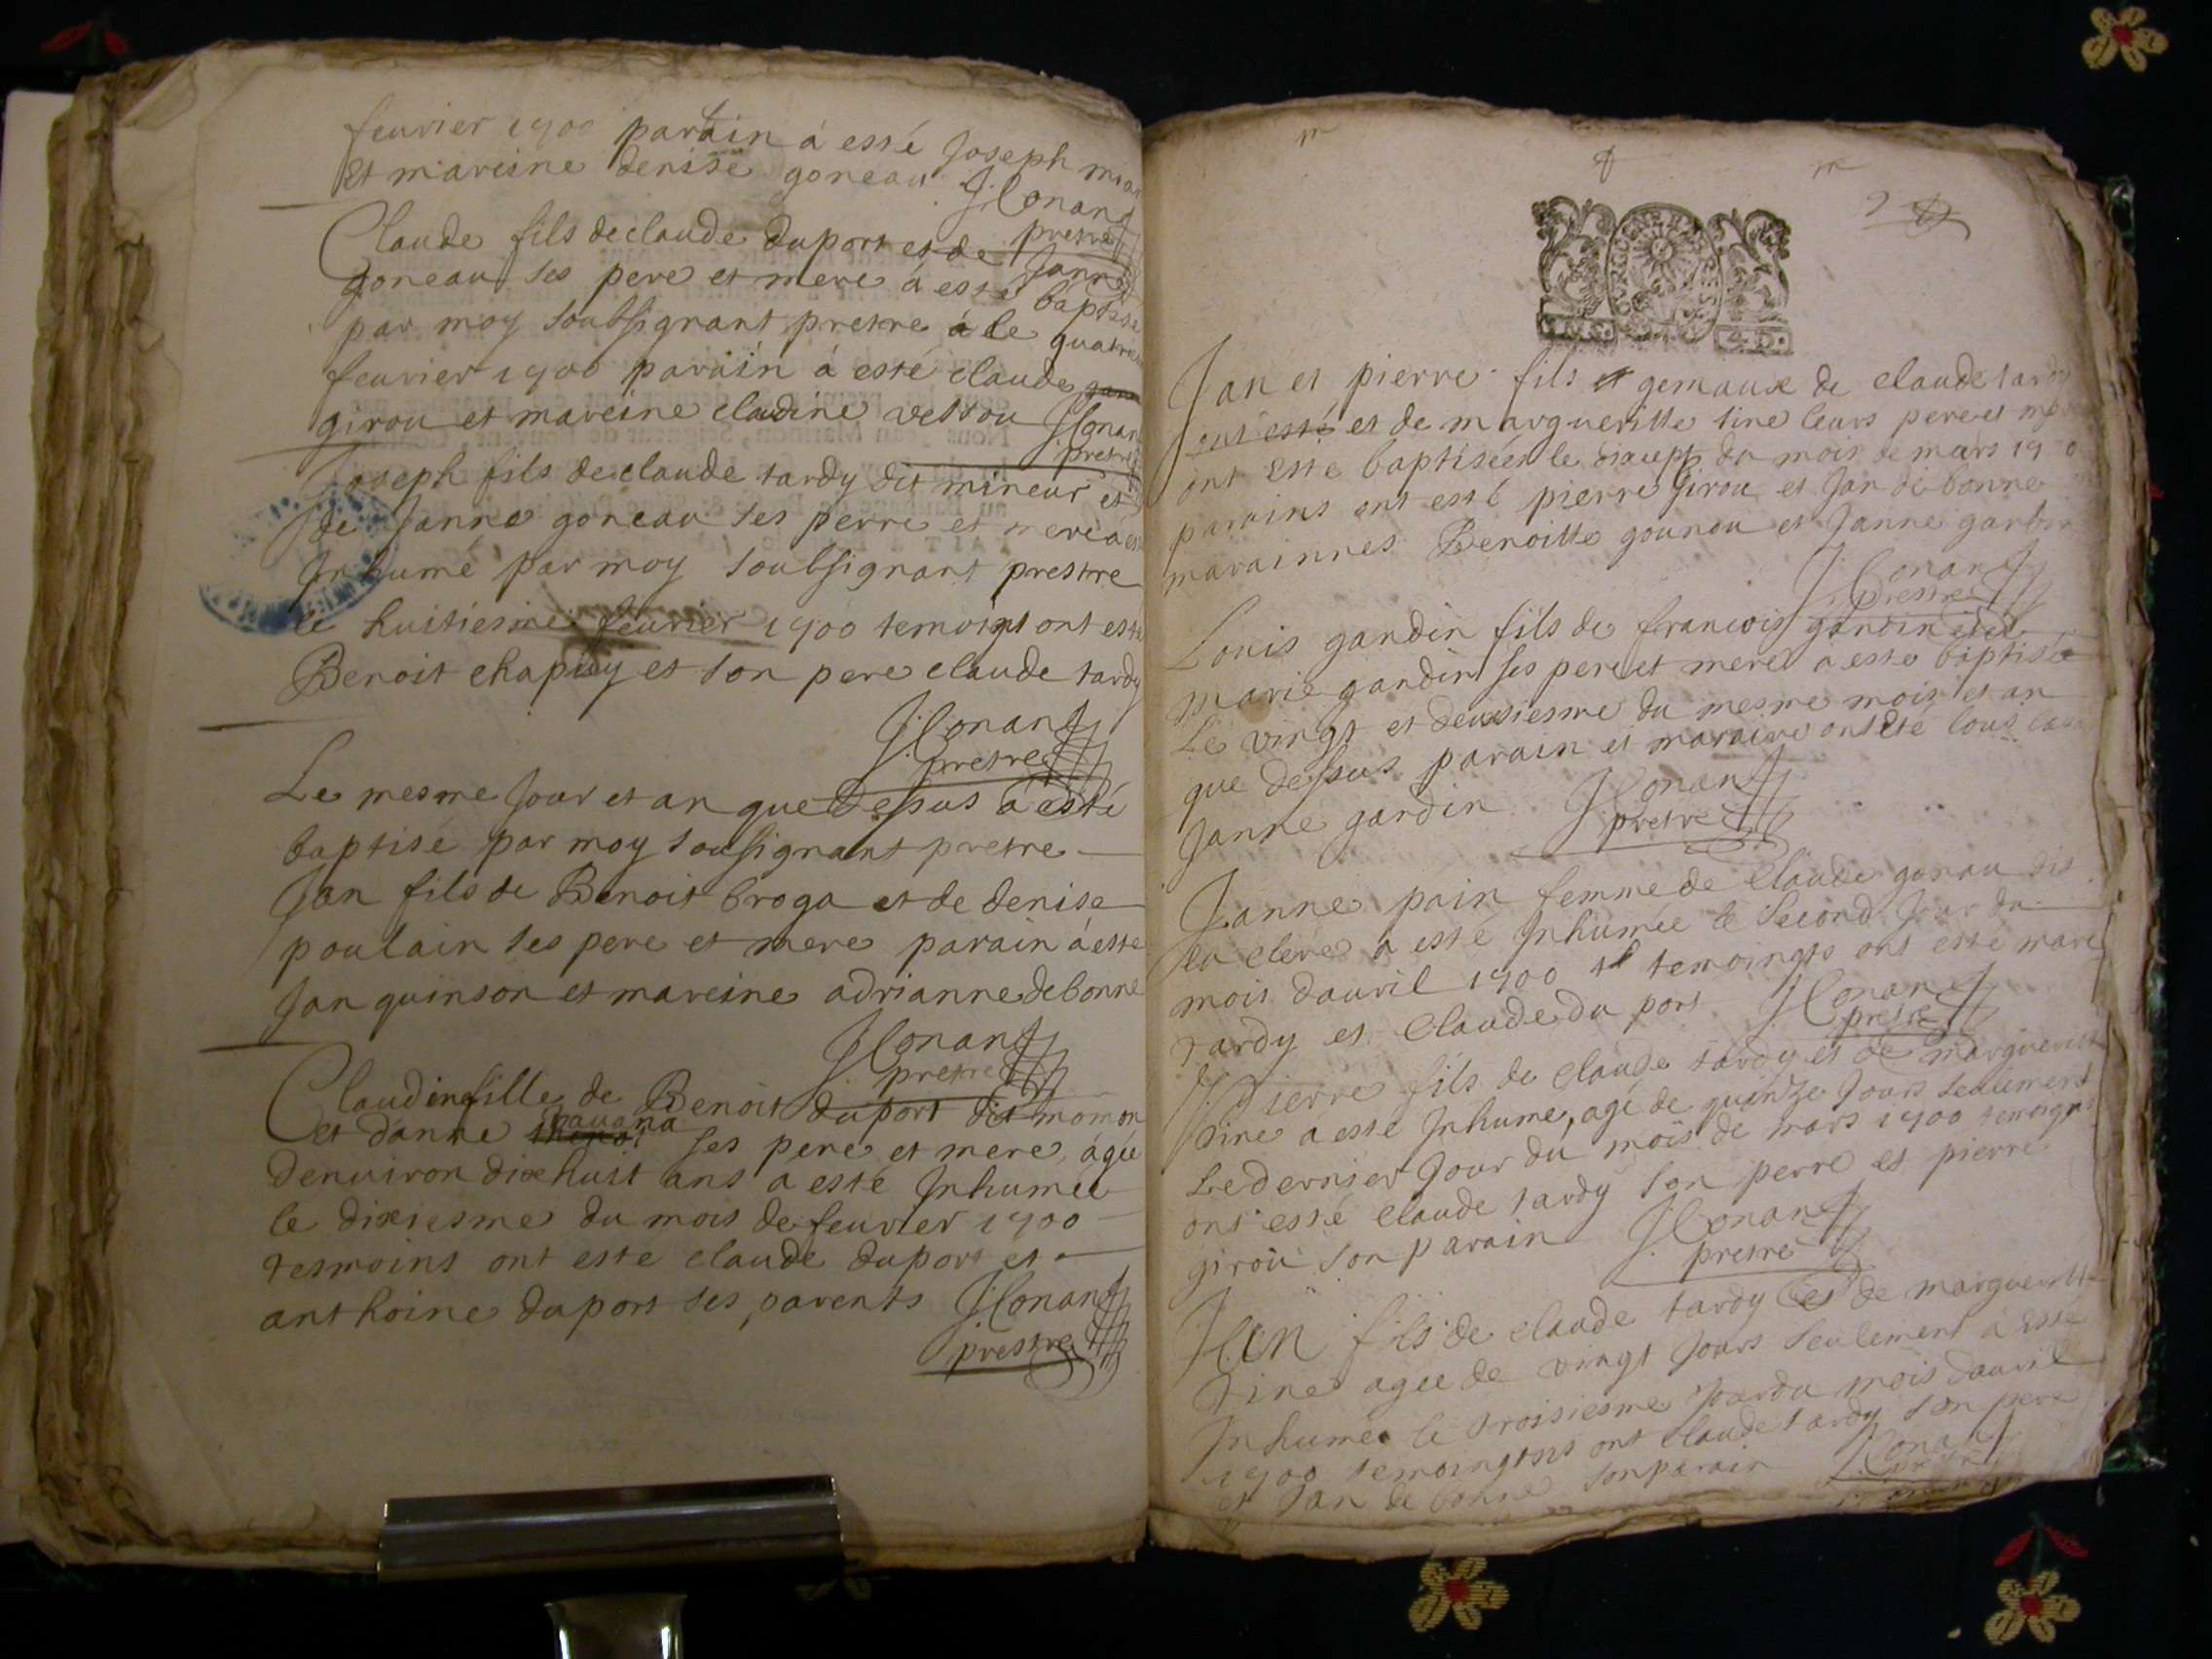 feuvrier 1700 parain á esté Joseph
Et mareine denise goneau JConand
prestre
Claude fils de claude duport et de Janne
goneau ses pere et mere á esté baptisé
par moy soubsignant pretre á le
feuvrier 1700 parain á esté claude
girou et mareine claudine vettou JConand
pretre
Joseph fils de claude tardy dit mineur et
de Janne goneau ses perre et mere a
Inhumé par moy soubsignant prestre
le huitiesme feuvrier 1700 temoings ont esté
Benoit chapuy et son pere claude tardy
JConand
pretre
Le mesme Jour et an que dessus á esté
baptisé par moy sousignant pretre
Jan fils de Benoit broga et de denise
poulain ses pere et mere parain á esté
Jan quinson et mareine adrianne debonne
JConand
pretre
Claudine fille de Benoit duport dit momon
et danne ses pere et mere, ágée
denuiron dixhuit ans a esté Inhumée
le dixiesme du mois de feuvrier 1700
tesmoins ont este claude duport et
anthoine duport ses parents JConand
prestre
Jan et pierre fils gemaux de claude tardy
ont esté et de margueritte tine leurs pere et mere
ont esté baptisées le du mois de mars
parains ont esté pierre girou et Jan de bonne
marainnes Benoitte gounou et Janne
JConand
prestre
Louis gandin fils de francois gandin et de
marie gandin ses pere et mere a esté baptisé
Le vingt et deuxiesme du mesme mois et an
que dessus parain et maraine ont été
Janne gardin JConand
pretre
Janne pain femme de Claude gonau dit
la clere a esté Inhumée le second Jour du
mois dauril 1700 temoingts ont esté marc
tardy et Claude du port JConand
pretre
Pierre fils de claude tardy et de margueritte
tine a esté Inhume, agé de quinze Jours seulement
Le dernier Jour du mois de mars 1700 temoigns
ont esté claude tardy son perre et pierre
girou son parain JConand
pretre
Jan fils de claude tardy et de margueritte
Tine agée de vingt Jours seulement a esté
Inhumée le troisiesme Jour du mois dauril
1700 temoingts ont claude tardy son pere
et Jan de bonne son parain JConand